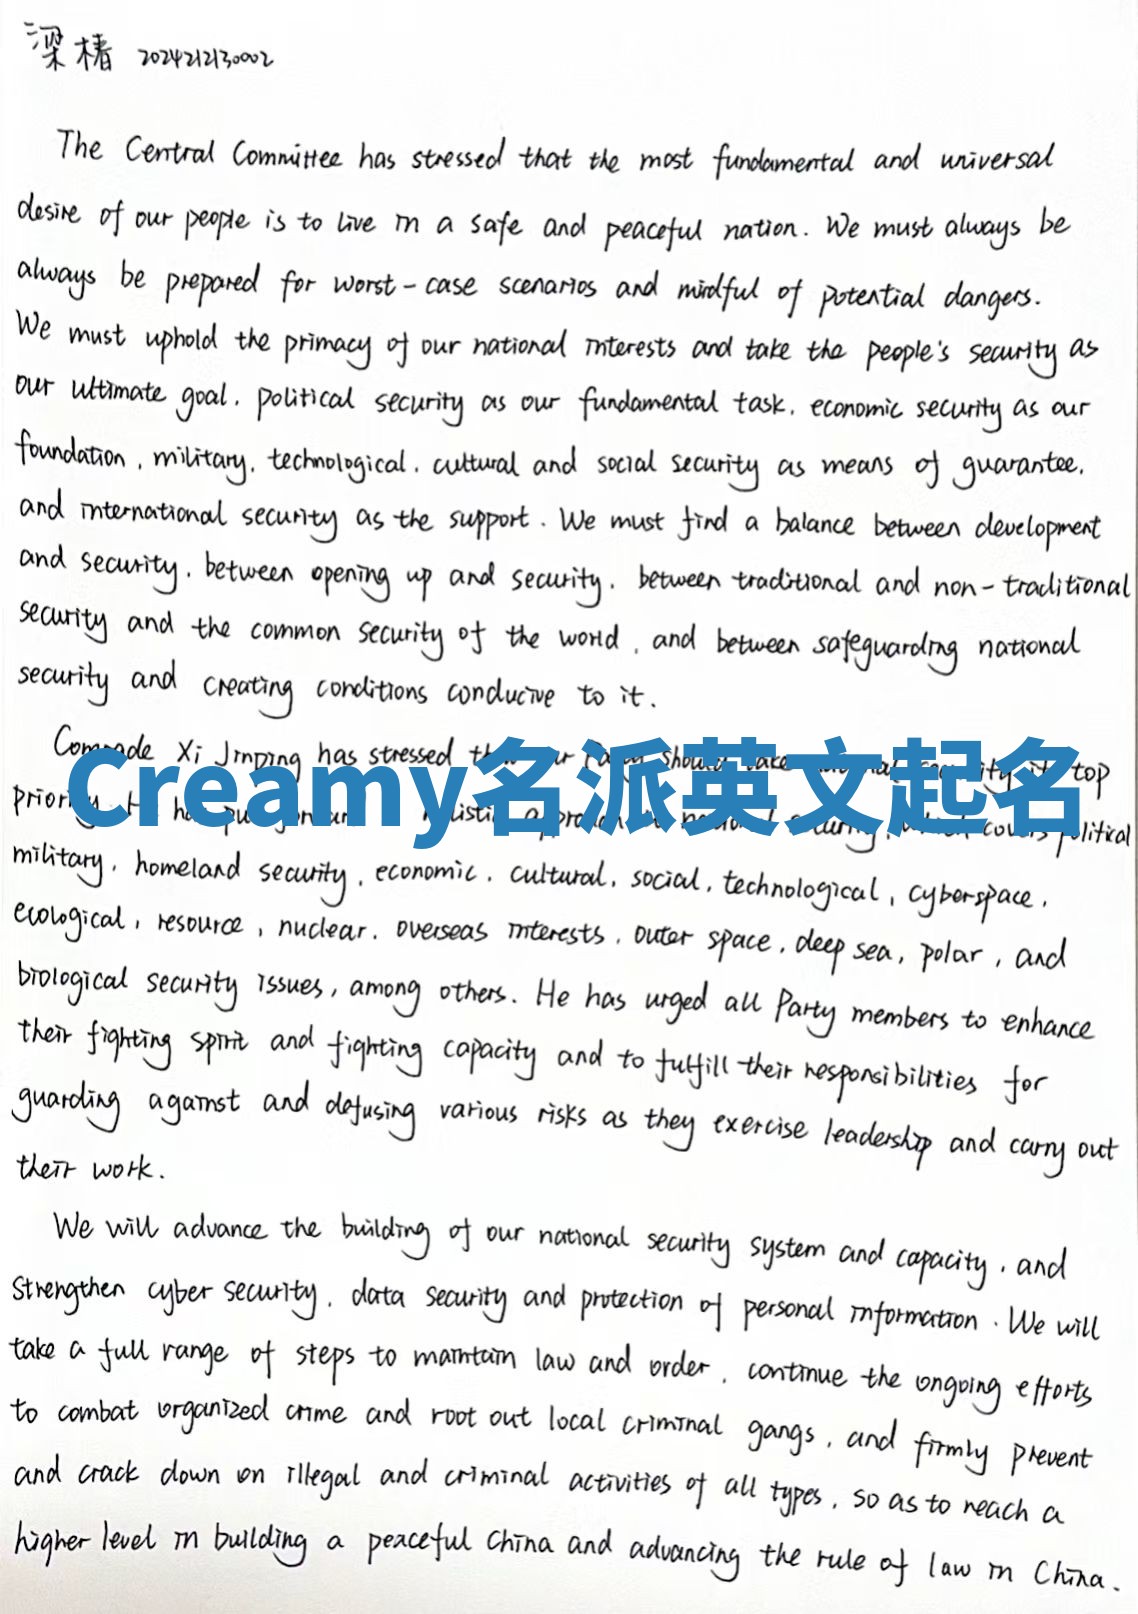 梁椿 2024212130002
The Central Committee has stressed that the most fundamental and universal
desire of our people is to live in a safe and peaceful nation. We must always be
always be prepared for worst-case scenarios and mindful of potential dangers.
We must uphold the primacy of our national interests and take the people's security as
our ultimate goal, political security as our fundamental task, economic security as our
foundation, military, technological, cultural and social security as means of guarantee,
and international security as the support. We must find a balance between development
and security, between opening up and security, between traditional and non-traditional
security and the common security of the world, and between safeguarding national
security and creating conditions conducive to it.
Comrade Xi Jinping has stressed should take top
Creamy名派英文起名
priority. covers political
military, homeland security, economic, cultural, social, technological, cyberspace,
ecological, resource, nuclear, overseas interests, outer space, deep sea, polar, and
biological security issues, among others. He has urged all Party members to enhance
their fighting spirit and fighting capacity and to fulfill their responsibilities for
guarding against and defusing various risks as they exercise leadership and carry out
their work.
We will advance the building of our national security system and capacity, and
strengthen cyber security, data security and protection of personal information. We will
take a full range of steps to maintain law and order, continue the ongoing efforts
to combat organized crime and root out local criminal gangs, and firmly prevent
and crack down on illegal and criminal activities of all types, so as to reach a
higher level in building a peaceful China and advancing the rule of law in China.